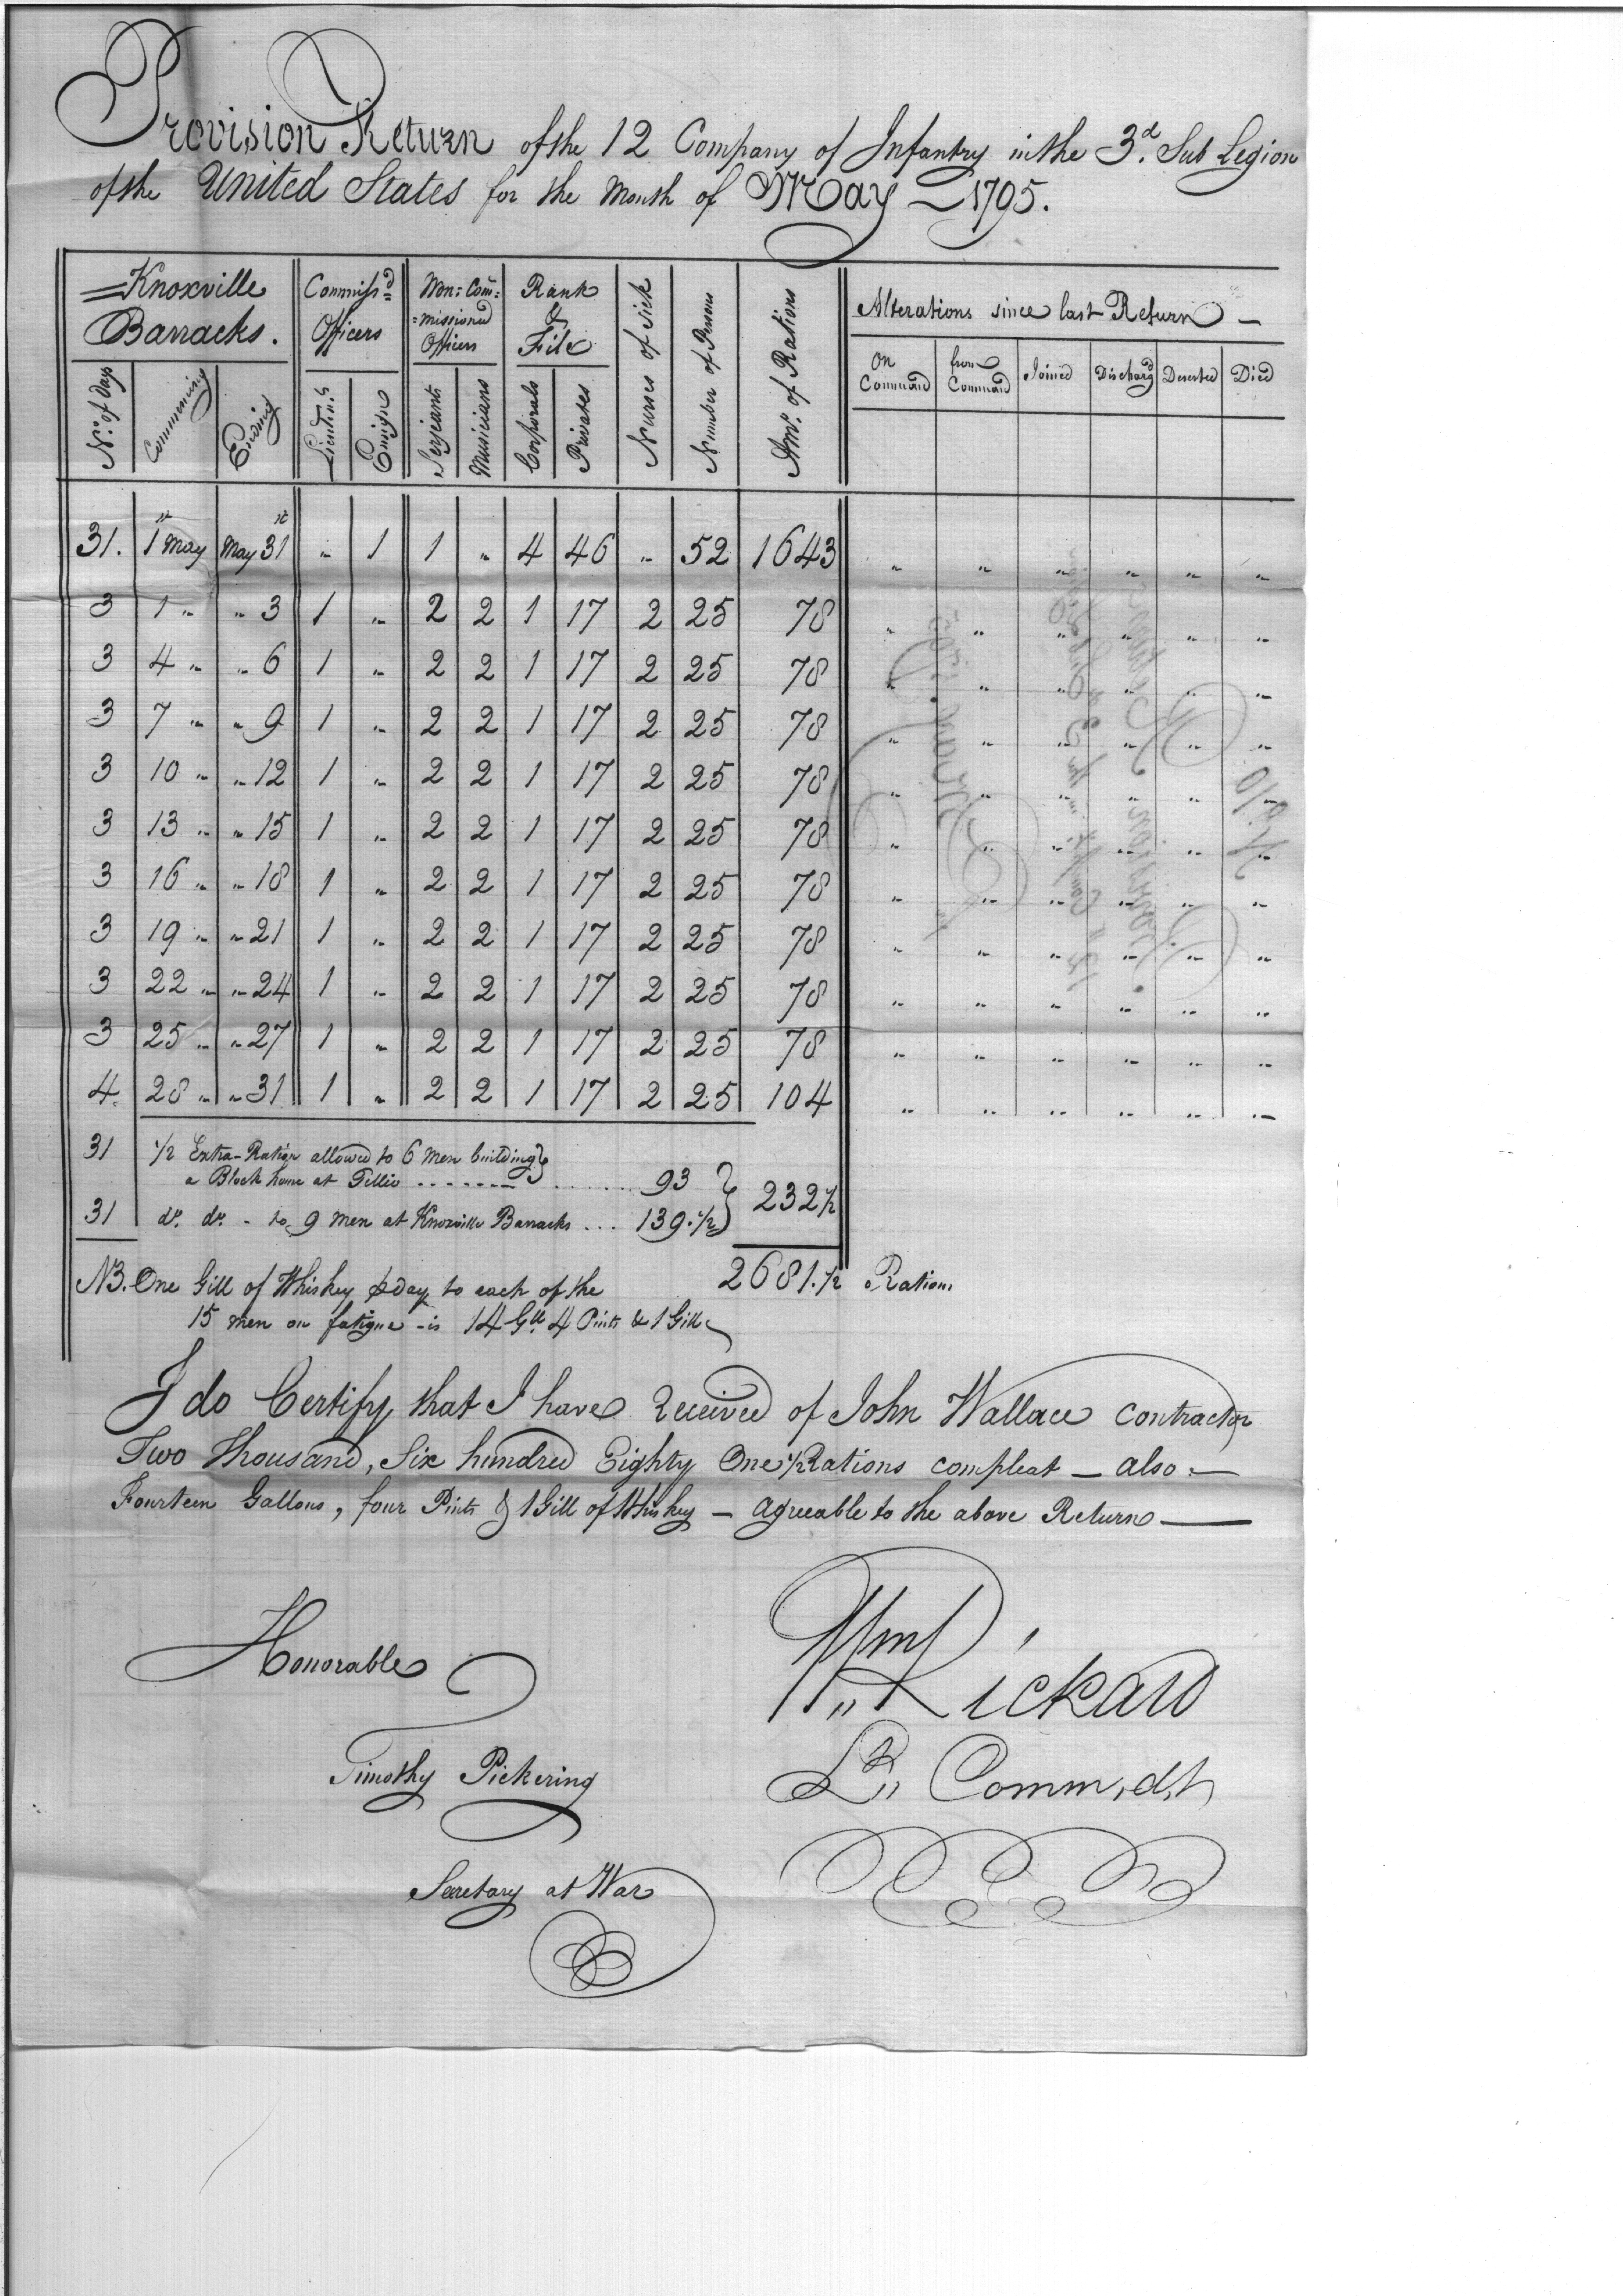 Provision Return of the 12 Company of Infantry in the 3d. Sub Legion
of the United States for the Month of May 1795.
Knoxville Barracks. | Commiss'd Officers | Non=Com=missioned Officers | Rank & File | Nurses of Sick | Number of Persons | Amt. of Rations | Alterations since last Return
No. of Days | Commencing | Ending | Lieuten.ts | Ensign | Serjeants | Musicians | Corporals | Privates | On Command | from Command | Joined | Discharg'd | Deserted | Died
31. | 1st May | May 31st | " | 1 | 1 | " | 4 | 46 | " | 52 | 1643 | " | " | " | " | " | "
3 | 1 " | " 3 | 1 | " | 2 | 2 | 1 | 17 | 2 | 25 | 78 | " | " | " | " | " | "
3 | 4 " | " 6 | 1 | " | 2 | 2 | 1 | 17 | 2 | 25 | 78 | " | " | " | " | " | "
3 | 7 " | " 9 | 1 | " | 2 | 2 | 1 | 17 | 2 | 25 | 78 | " | " | " | " | " | "
3 | 10 " | " 12 | 1 | " | 2 | 2 | 1 | 17 | 2 | 25 | 78 | " | " | " | " | " | "
3 | 13 " | " 15 | 1 | " | 2 | 2 | 1 | 17 | 2 | 25 | 78 | " | " | " | " | " | "
3 | 16 " | " 18 | 1 | " | 2 | 2 | 1 | 17 | 2 | 25 | 78 | " | " | " | " | " | "
3 | 19 " | " 21 | 1 | " | 2 | 2 | 1 | 17 | 2 | 25 | 78 | " | " | " | " | " | "
3 | 22 " | " 24 | 1 | " | 2 | 2 | 1 | 17 | 2 | 25 | 78 | " | " | " | " | " | "
3 | 25 " | " 27 | 1 | " | 2 | 2 | 1 | 17 | 2 | 25 | 78 | " | " | " | " | " | "
4 | 28 " | " 31 | 1 | " | 2 | 2 | 1 | 17 | 2 | 25 | 104 | " | " | " | " | " | "
31 1/2 Extra-Ration allowed to 6 Men building
a Block house at Tellico ....... 93
232 1/2
31 do. do. - to 9 men at Knoxville Barracks ... 139.1/2
2681.1/2 Rations
NB. One Gill of Whiskey p day to each of the
15 men on fatigue - is 14 Gll. 4 Pints & 1 Gill
I do Certify, that I have Received of John Wallace Contractor
Two Thousand, Six hundred Eighty One 1/2 Rations compleat — also —
Fourteen Gallons, four Pints & 1 Gill of Whiskey — agreeable to the above Return —
Honorable
Timothy Pickering
Secretary at War
Wm Rickard
Lt. Comm,d,t